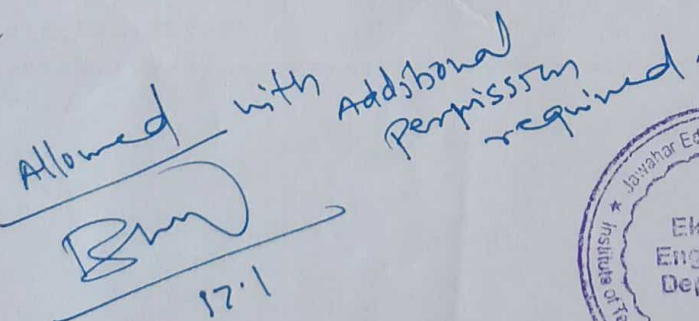 Allowed with Additional
permission
required.
17.1
Jawahar Ed
Institute of Te